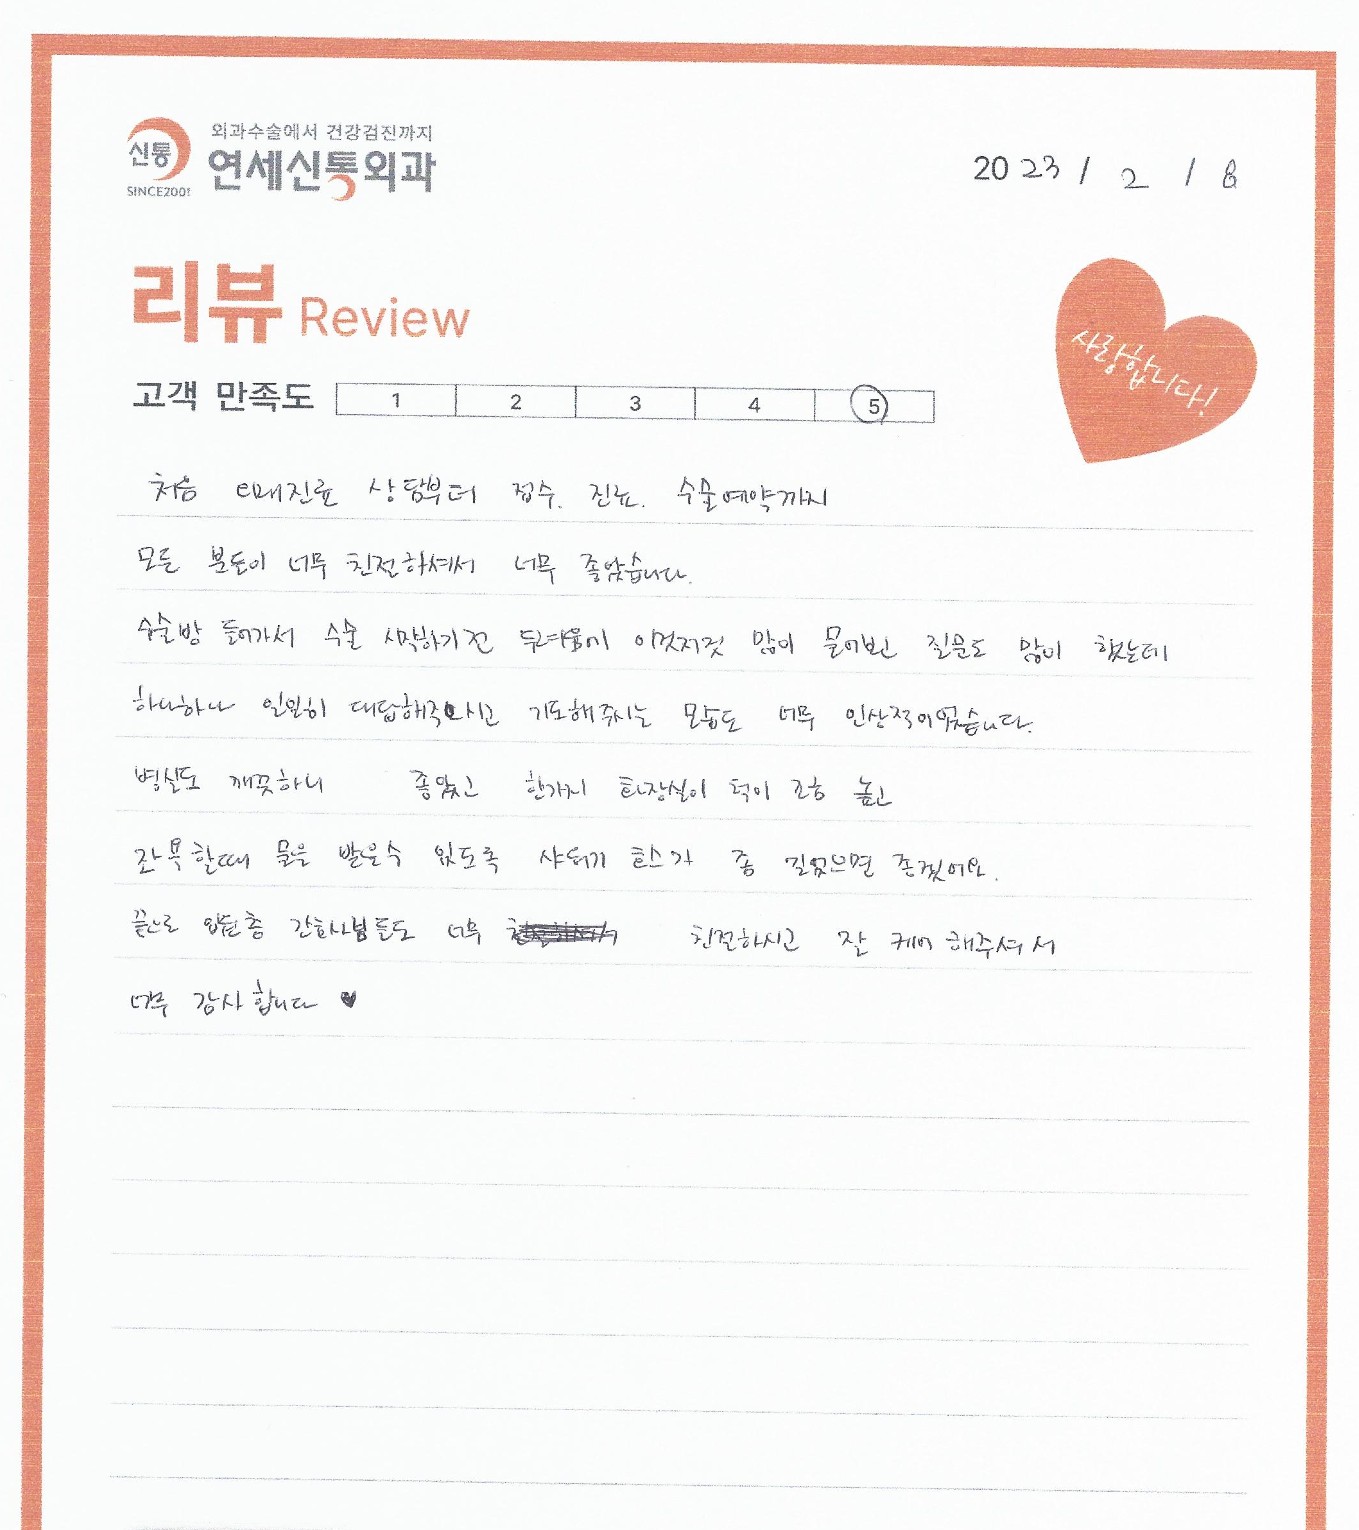 외과수술에서 건강검진까지
신통
연세신통외과
SINCE2001
2023 / 2 / 8
리뷰 Review
사랑합니다!
고객 만족도 1 2 3 4 5
처음 비대면진료 상담부터 접수. 진료. 수술예약까지
모든 분들이 너무 친절하셔서 너무 좋았습니다.
수술방 들어가서 수술 시작하기전 두려움에 이것저것 많이 물어보고 질문도 많이 했는데
하나하나 일일히 대답해주시고 기도해주시는 모습도 너무 인상적이였습니다.
병실도 깨끗하니 좋았고 한가지 화장실이 턱이 조금 높고
좌욕할때 물을 받을수 있도록 샤워기 호스가 좀 길었으면 좋겠어요.
끝으로 입원층 간호사님들도 너무 친절하시고 잘 케어 해주셔서
너무 감사합니다 ♥